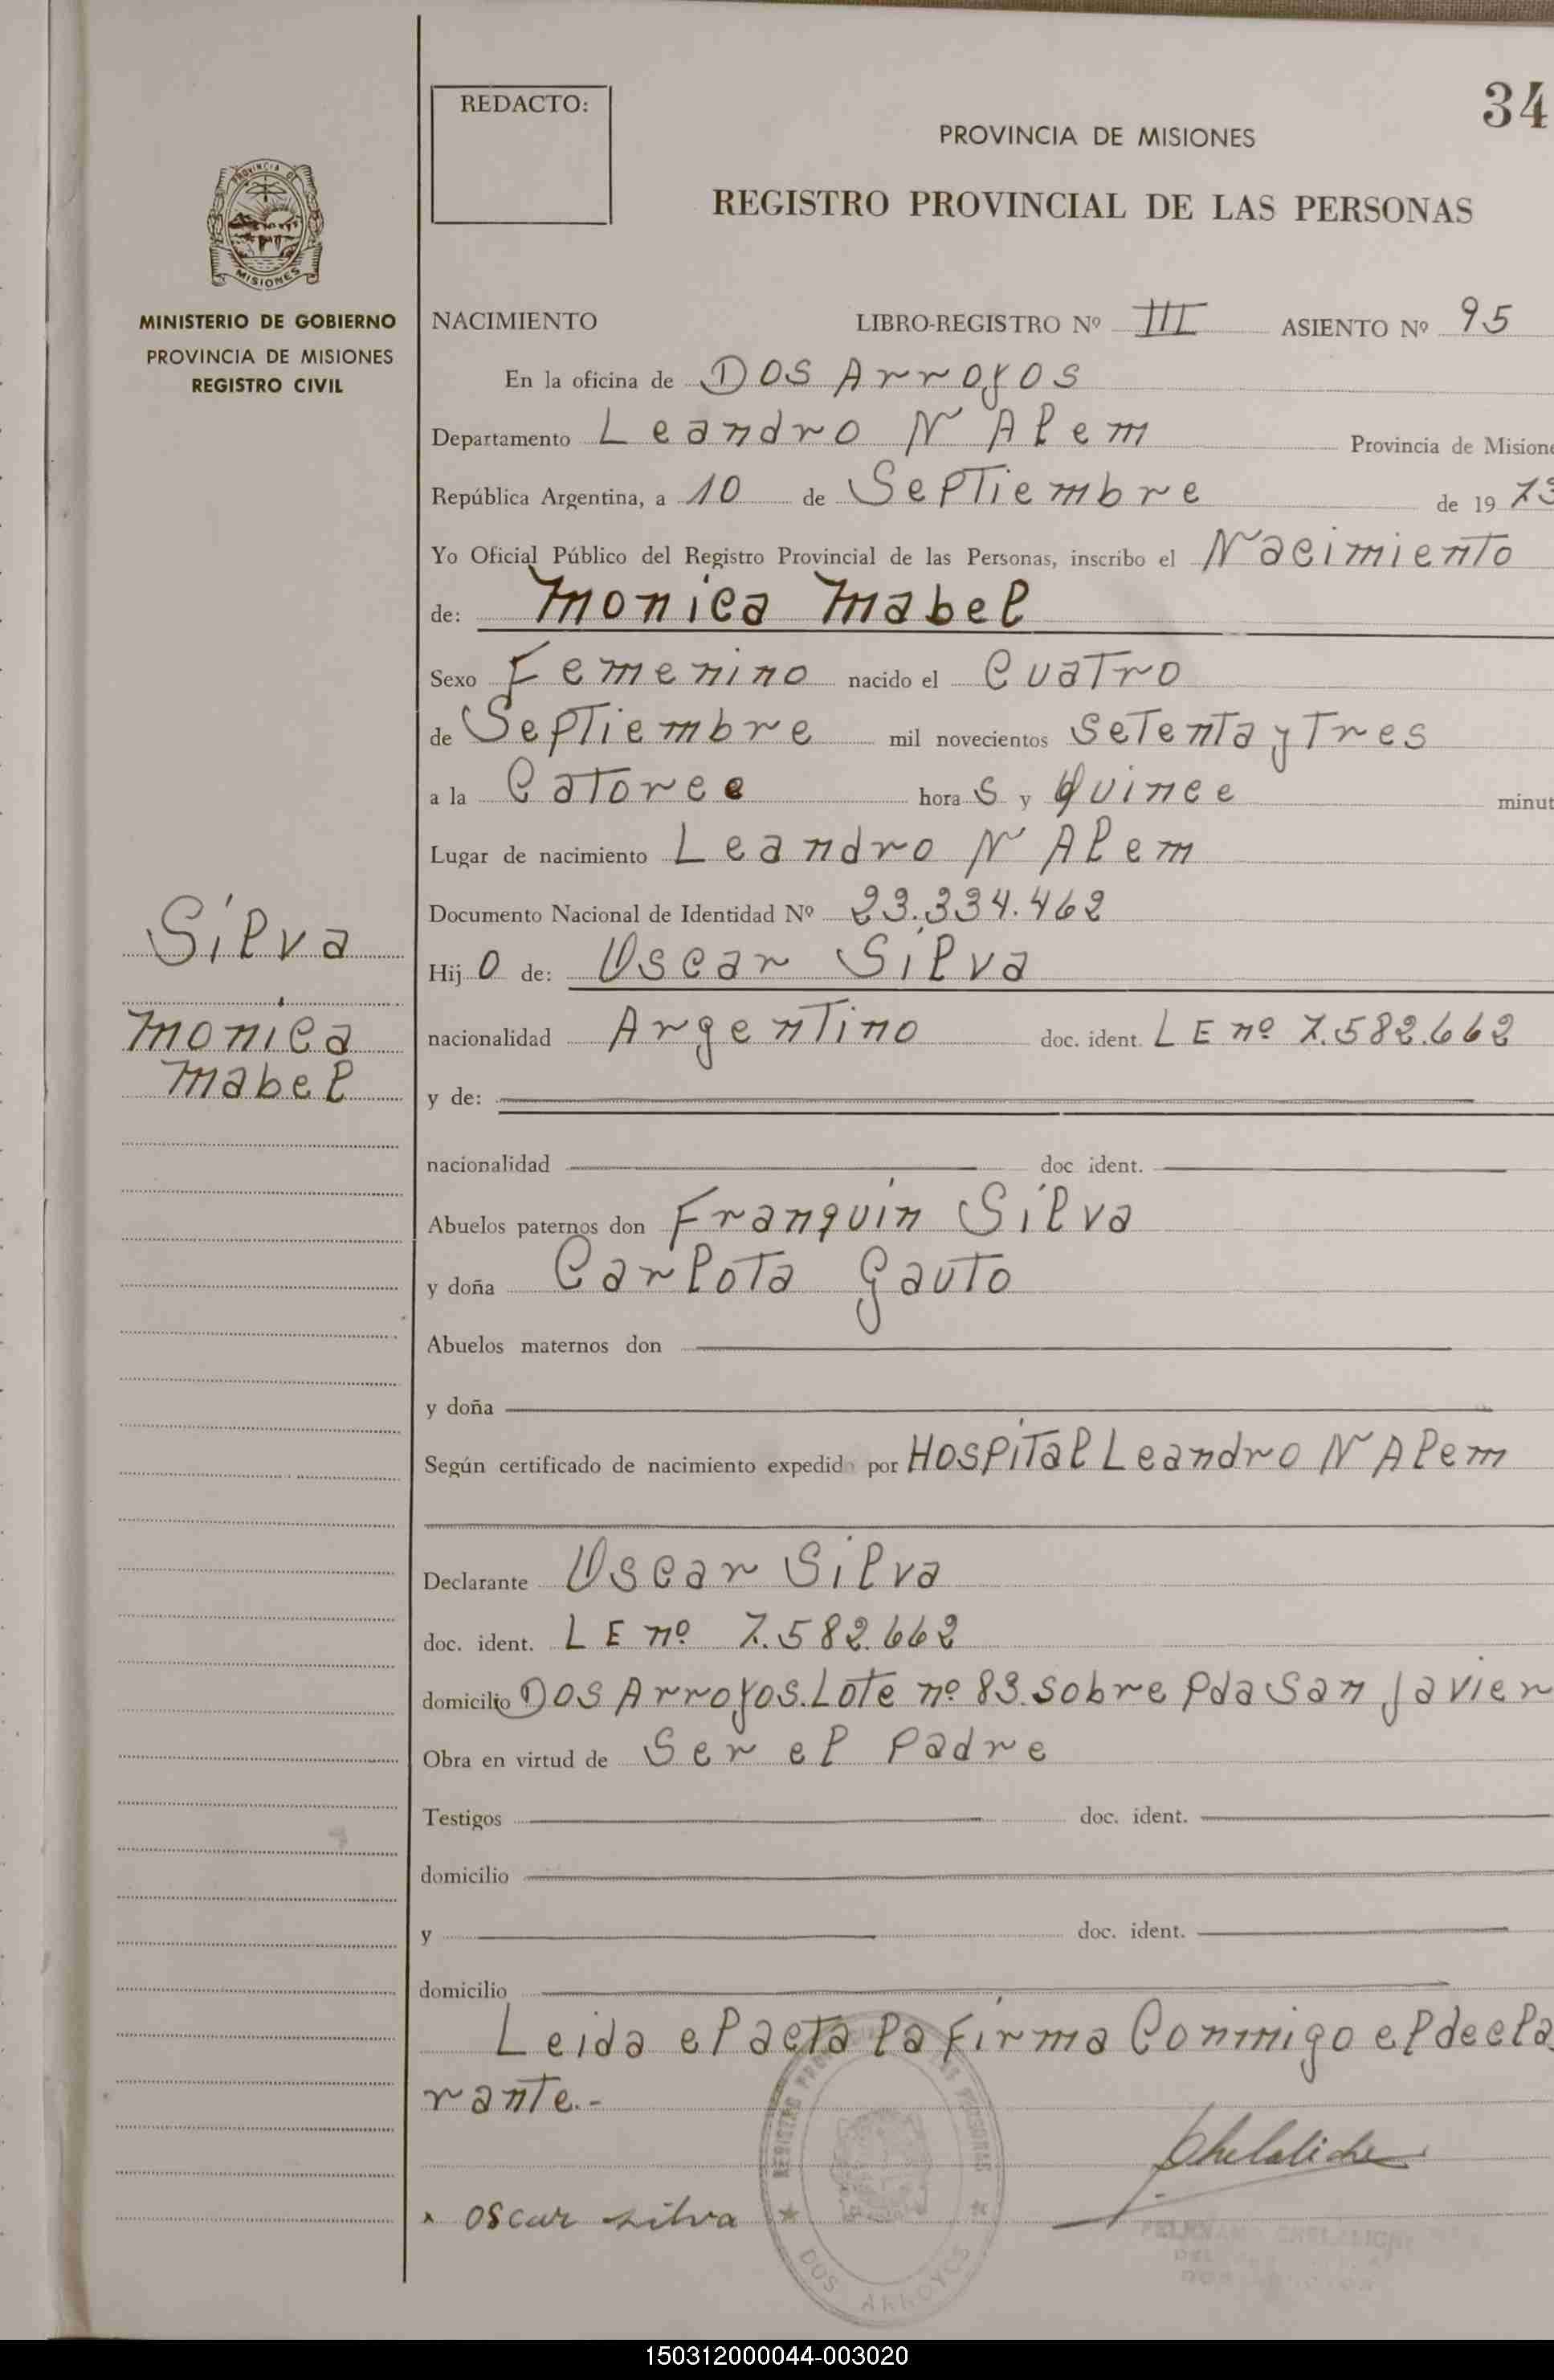 34
REDACTO:
PROVINCIA DE MISIONES
REGISTRO PROVINCIAL DE LAS PERSONAS
PROVINCIA DE
MISIONES
MINISTERIO DE GOBIERNO
PROVINCIA DE MISIONES
REGISTRO CIVIL
Silva
Monica
Mabel
NACIMIENTO LIBRO-REGISTRO Nº III ASIENTO Nº 95
En la oficina de DOS Arroyos
Departamento Leandro N Alem Provincia de Misione
República Argentina, a 10 de Septiembre de 19 73
Yo Oficial Público del Registro Provincial de las Personas, inscribo el Nacimiento
de: Monica Mabel
Sexo Femenino nacido el Cuatro
de Septiembre mil novecientos setenta y Tres
a la Catorce hora s y Quince minut
Lugar de nacimiento Leandro N Alem
Documento Nacional de Identidad Nº 23.334.462
Hij o de: Oscar Silva
nacionalidad Argentino doc. ident. L E nº 7.582.662
y de:
nacionalidad doc ident.
Abuelos paternos don Franquin Silva
y doña Carlota Gauto
Abuelos maternos don
y doña
Según certificado de nacimiento expedido por Hospital Leandro N Alem
Declarante Oscar Silva
doc. ident. L E nº 7.582.662
domicilio DOS Arroyos. Lote nº 83. sobre Pda San Javier
Obra en virtud de Ser el Padre
Testigos doc. ident.
domicilio
y doc. ident.
domicilio
Leida el acta la firma Conmigo el decla
rante.-
x oscar silva
Chelaliche
REGISTRO PROVINCIAL DE LAS PERSONAS
DOS ARROYOS
150312000044-003020